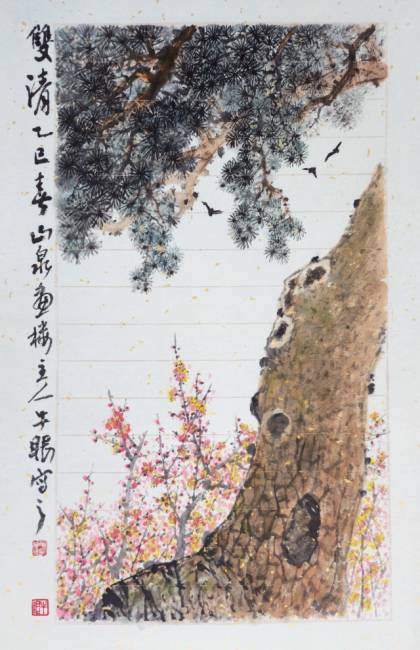 雙清乙巳春山泉畫樓主人牛眠寫之